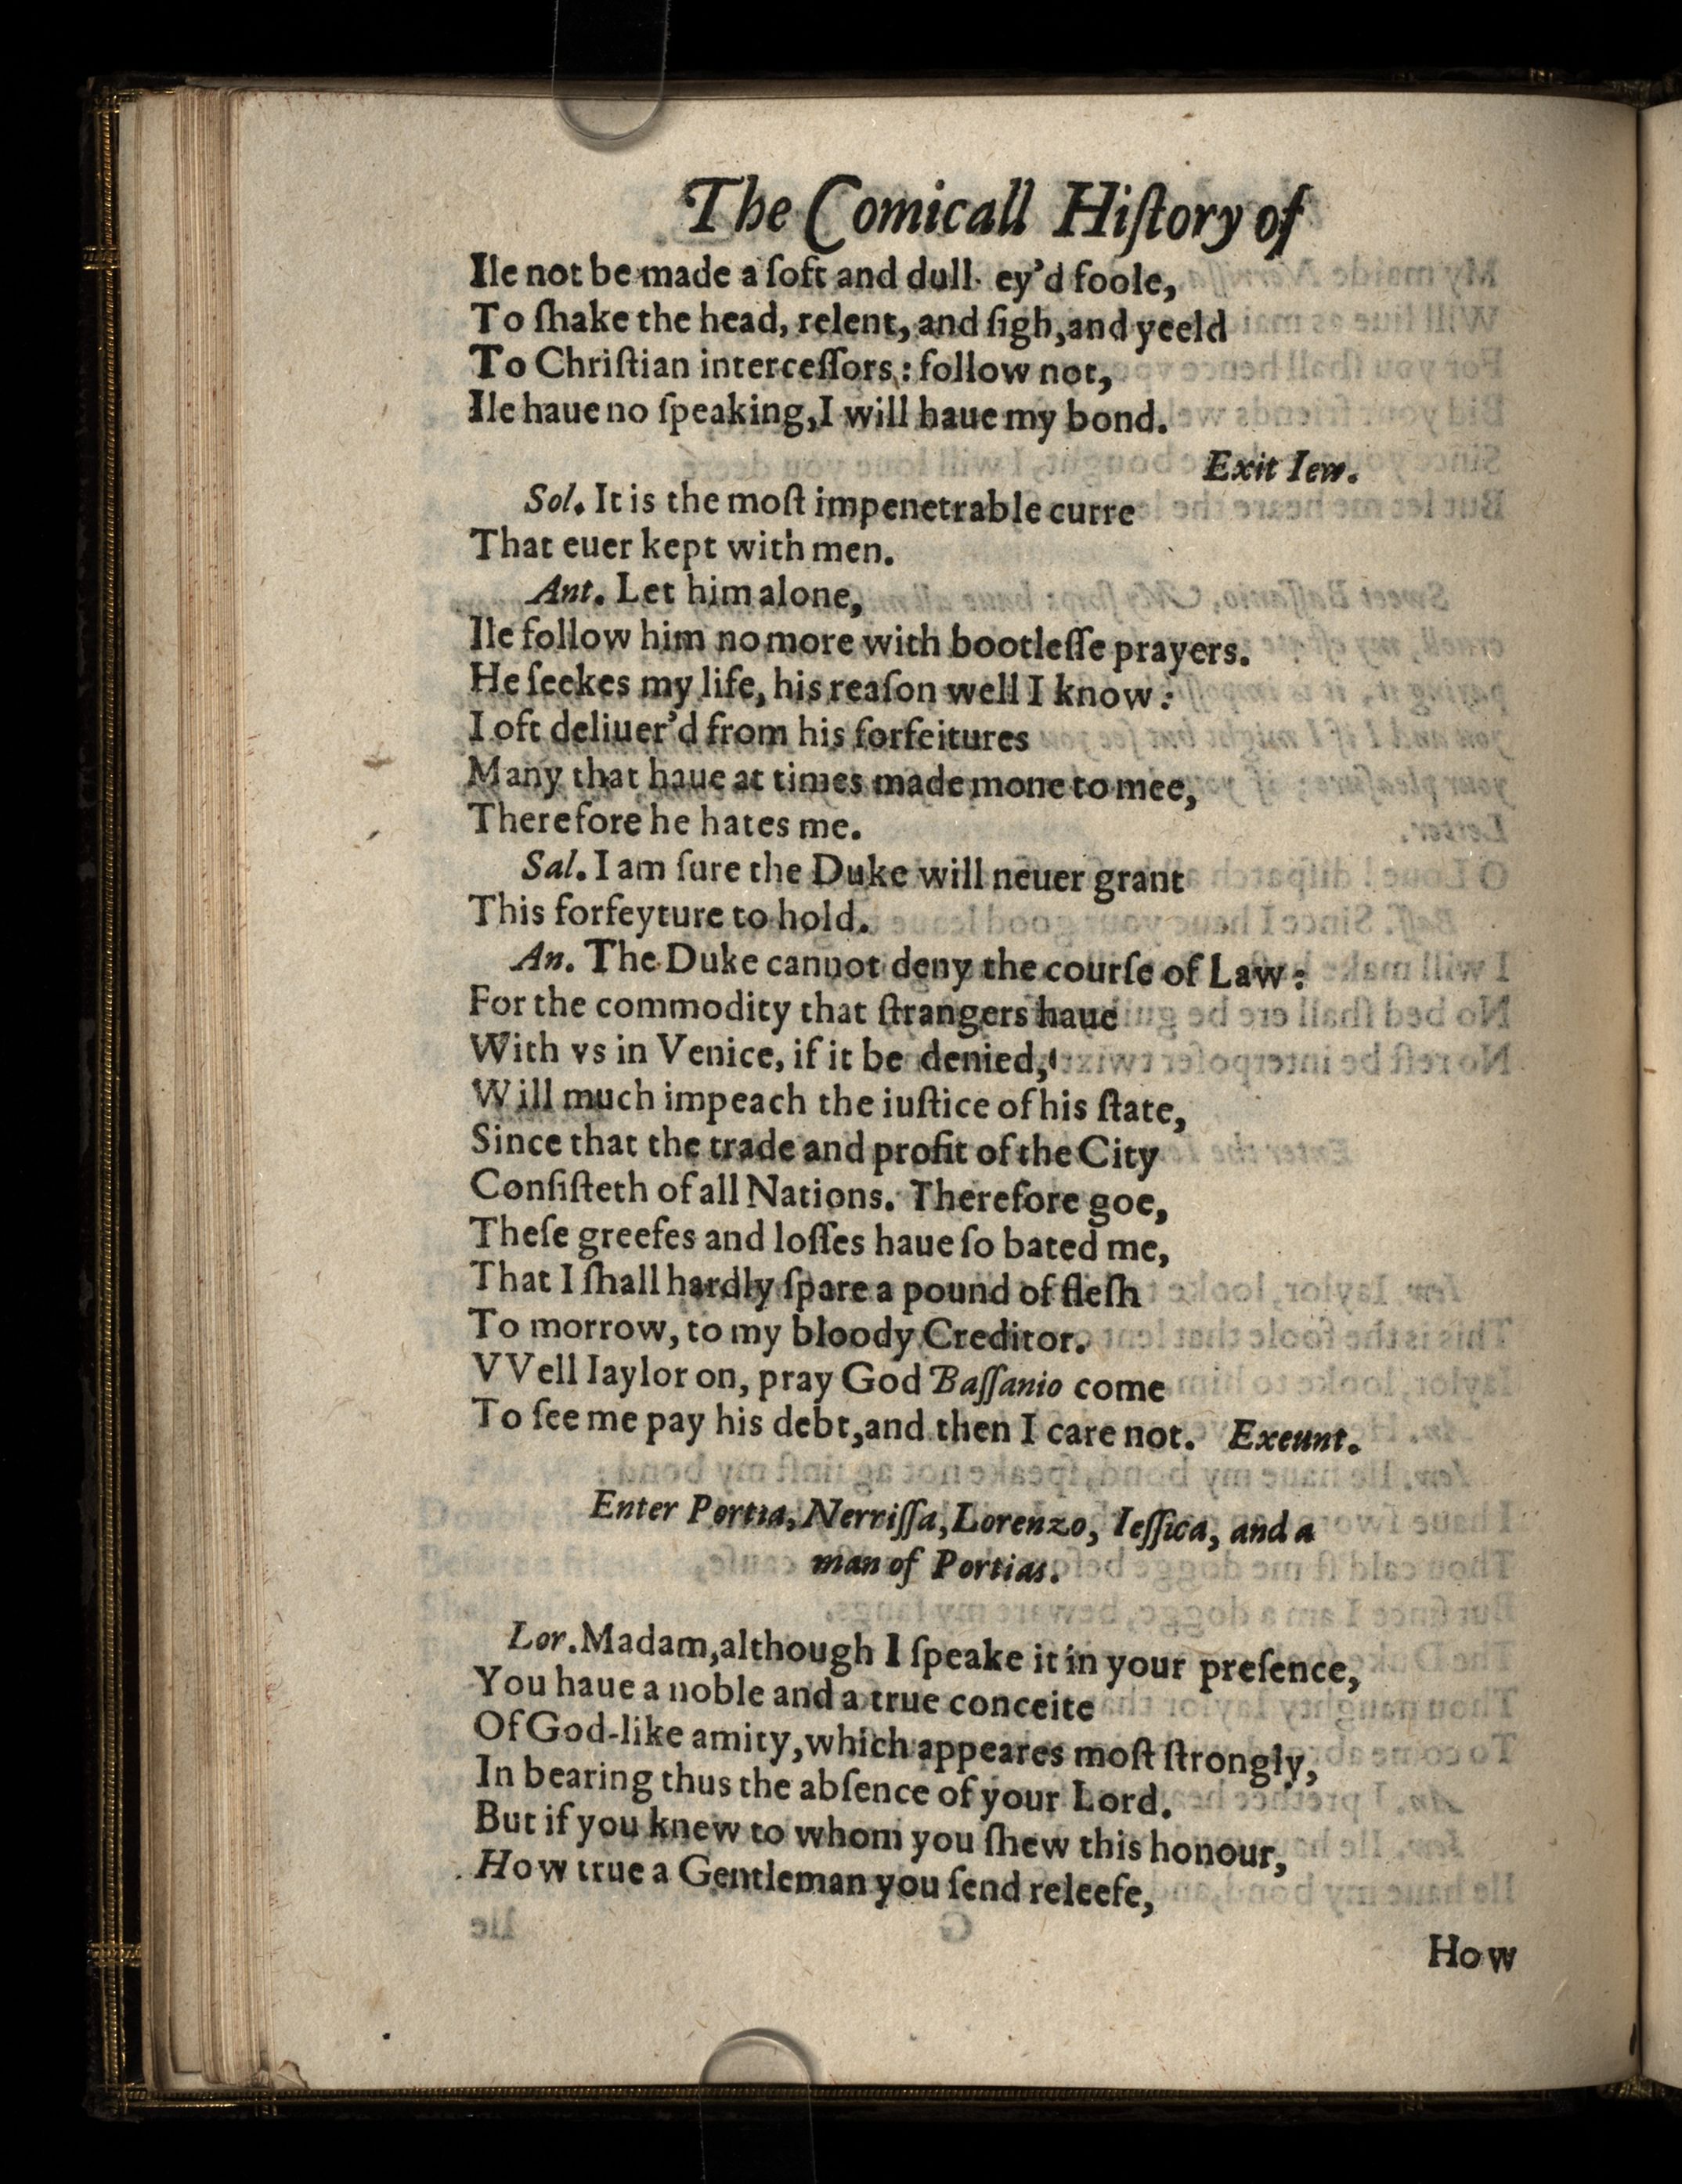 The Comicall Hiſtory of
Ile not be made a ſoft and dull- ey'd foole,
To ſhake the head, relent, and ſigh,and yeeld
To Chriſtian interceſſors: follow not,
Ile haue no ſpeaking,I will haue my bond.
Exit Iew.
Sol. It is the moſt impenetrable curre
That euer kept with men.
Ant. Let him alone,
Ile follow him no more with bootleſſe prayers.
He ſeekes my life, his reaſon well I know:
I oft deliuer'd from his forfeitures
Many that haue at times made mone to mee,
Therefore he hates me.
Sal. I am ſure the Duke will neuer grant
This forfeyture to hold.
An. The Duke cannot deny the courſe of Law:
For the commodity that ſtrangers haue
With vs in Venice, if it be denied,
Will much impeach the iuſtice of his ſtate,
Since that the trade and profit of the City
Conſiſteth of all Nations. Therefore goe,
Theſe greefes and loſſes haue ſo bated me,
That I ſhall hardly ſpare a pound of fleſh
To morrow, to my bloody Creditor.
VVell Iaylor on, pray God Baſſanio come
To ſee me pay his debt,and then I care not. Exeunt.
Enter Portia, Nerriſſa, Lorenzo, Ieſſica, and a
man of Portias.
Lor. Madam,although I ſpeake it in your preſence,
You haue a noble and a true conceite
Of God-like amity,which appeares moſt ſtrongly,
In bearing thus the abſence of your Lord.
But if you knew to whom you ſhew this honour,
How true a Gentleman you ſend releefe,
How